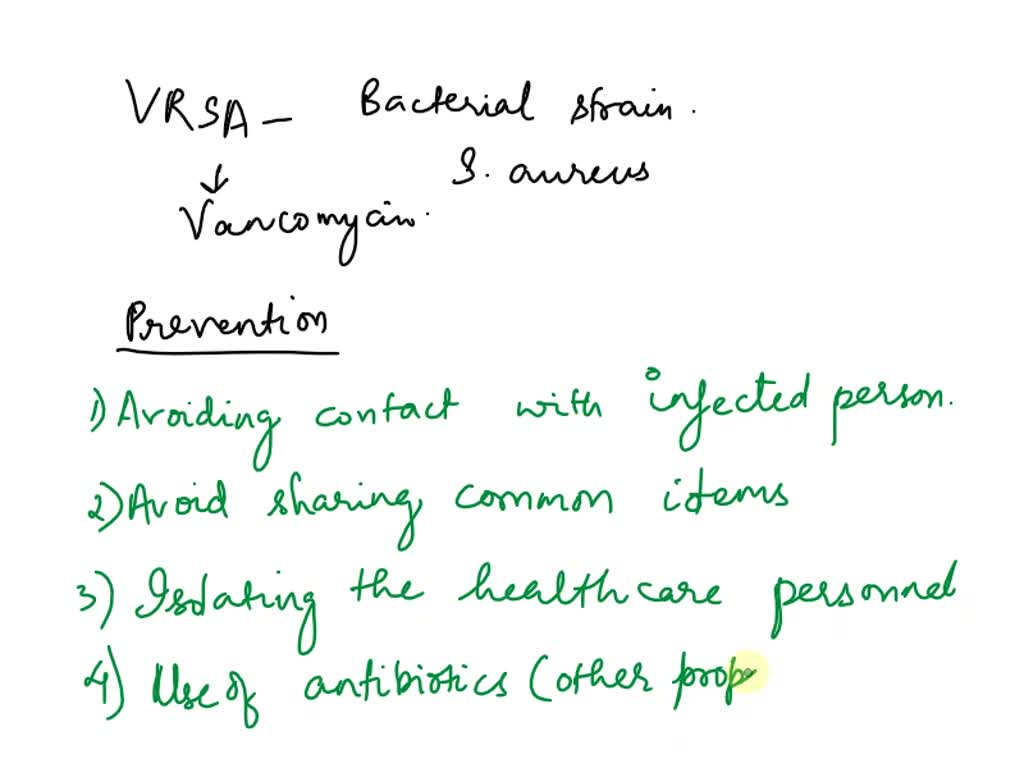 VRSA - Bacterial strain.
S. aureus
↓
Vancomycin.
Prevention
1) Avoiding contact with infected person.
2) Avoid sharing common items
3) Isolating the healthcare personnel
4) Use of antibiotics (other prop